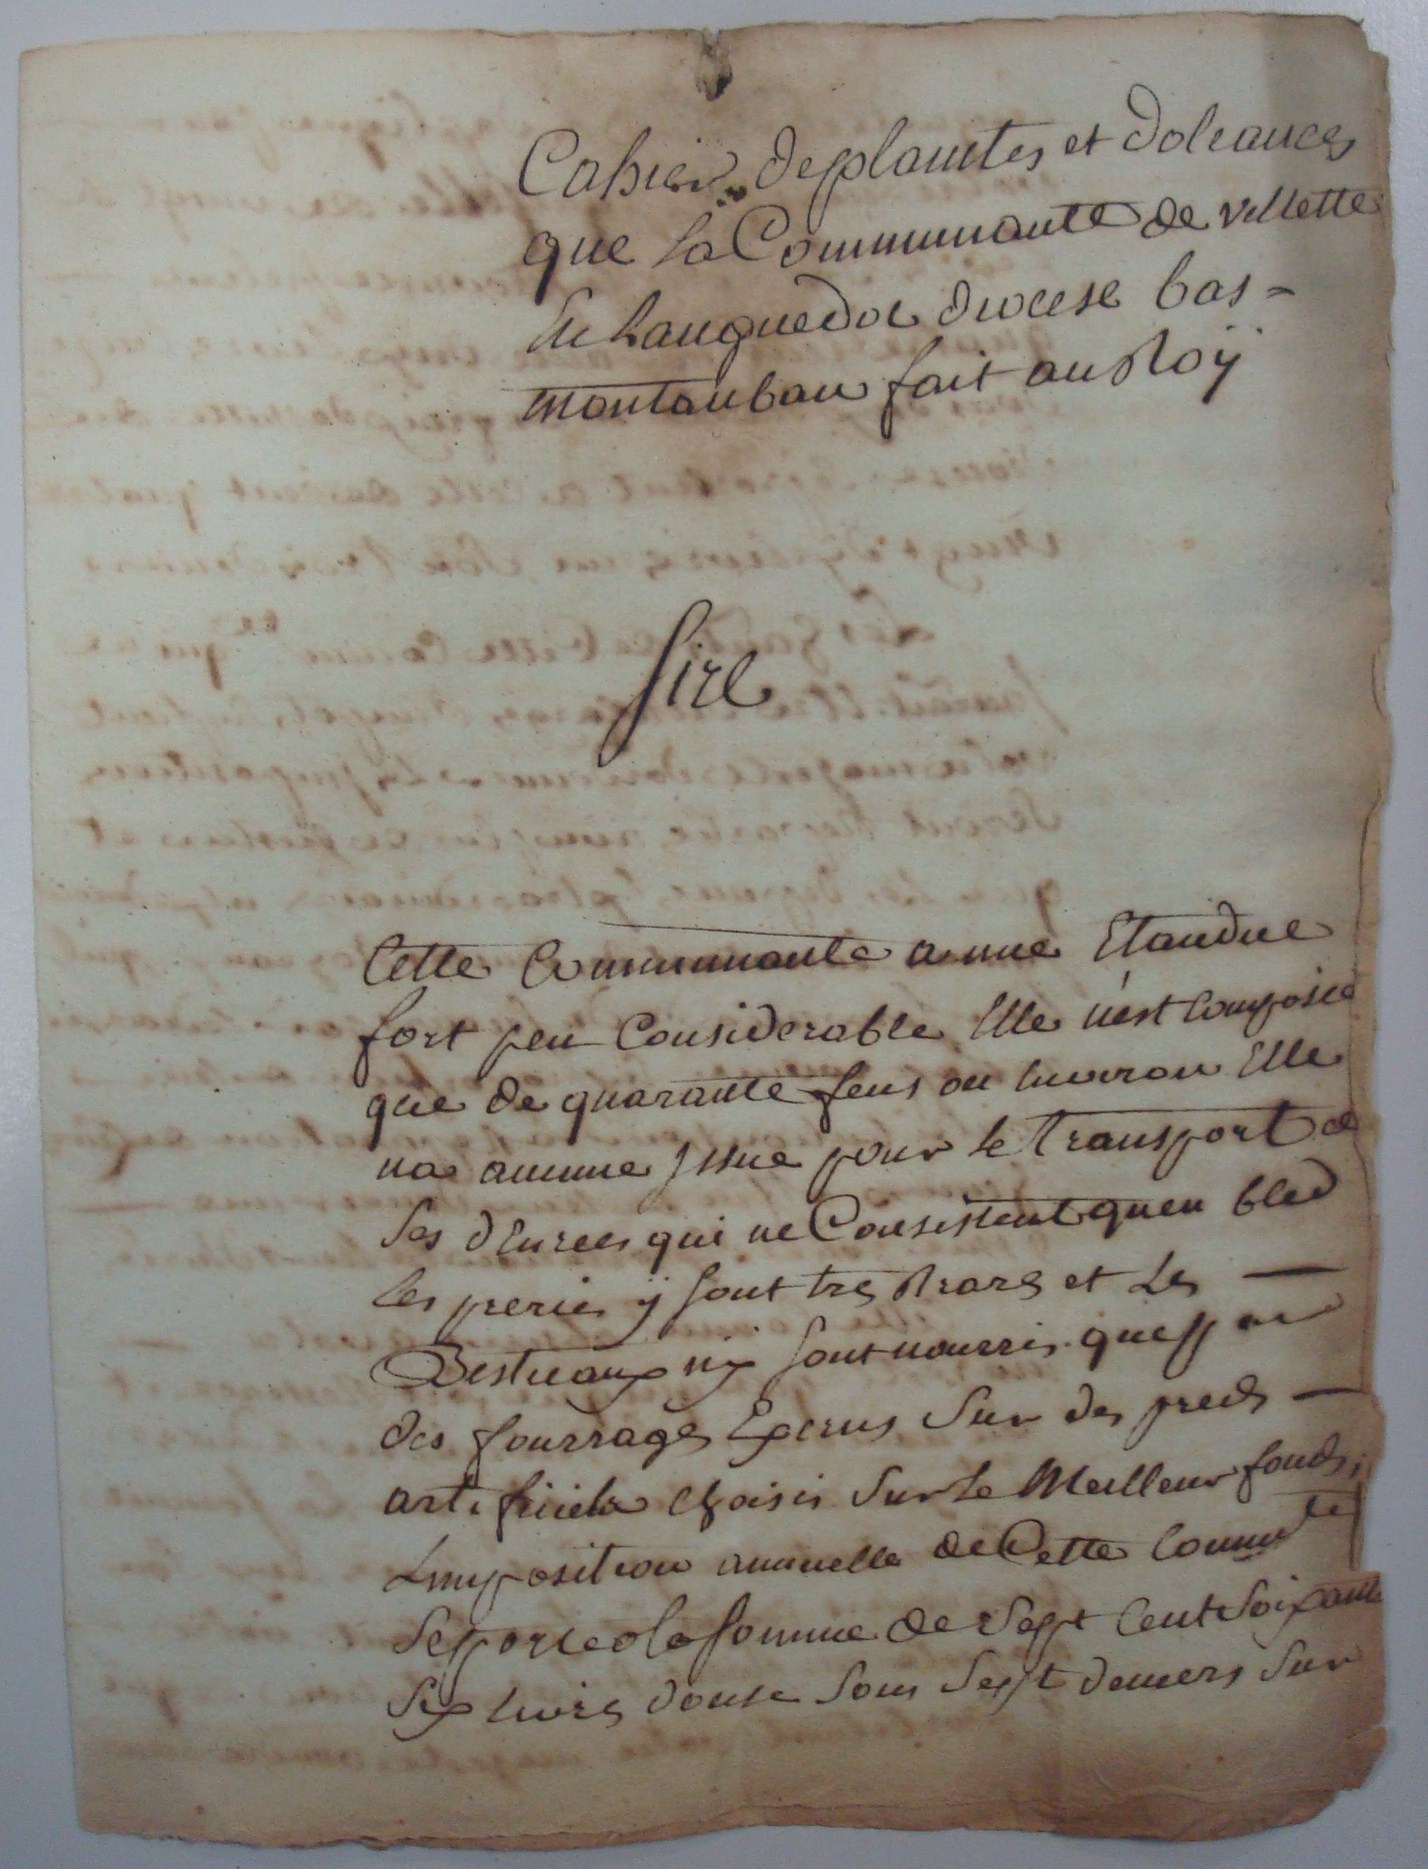 Cahier de plaintes et doleances
que la Communauté de villette
En Languedoc diocese bas =
montauban fait au Roÿ
Sire
Cette Communauté a une Etandue
fort peu Considerable Elle n'est Composée
que de quarante feus ou Environ Elle
na aucune Issue pour le transport de
Ses dEnrees qui ne Consistent quen bled
les preries ÿ sont tres Rares et Les —
Bestieaux nÿ sont nourris que par
des fourrages Excrus Sur des preds —
artificiels choisis Sur Le Meilleur fonds,
Limposition annuelle de Cette Commte
Se porte a la somme de Sept Cent Soixante
Six livres douse Sous Sept deniers Sur